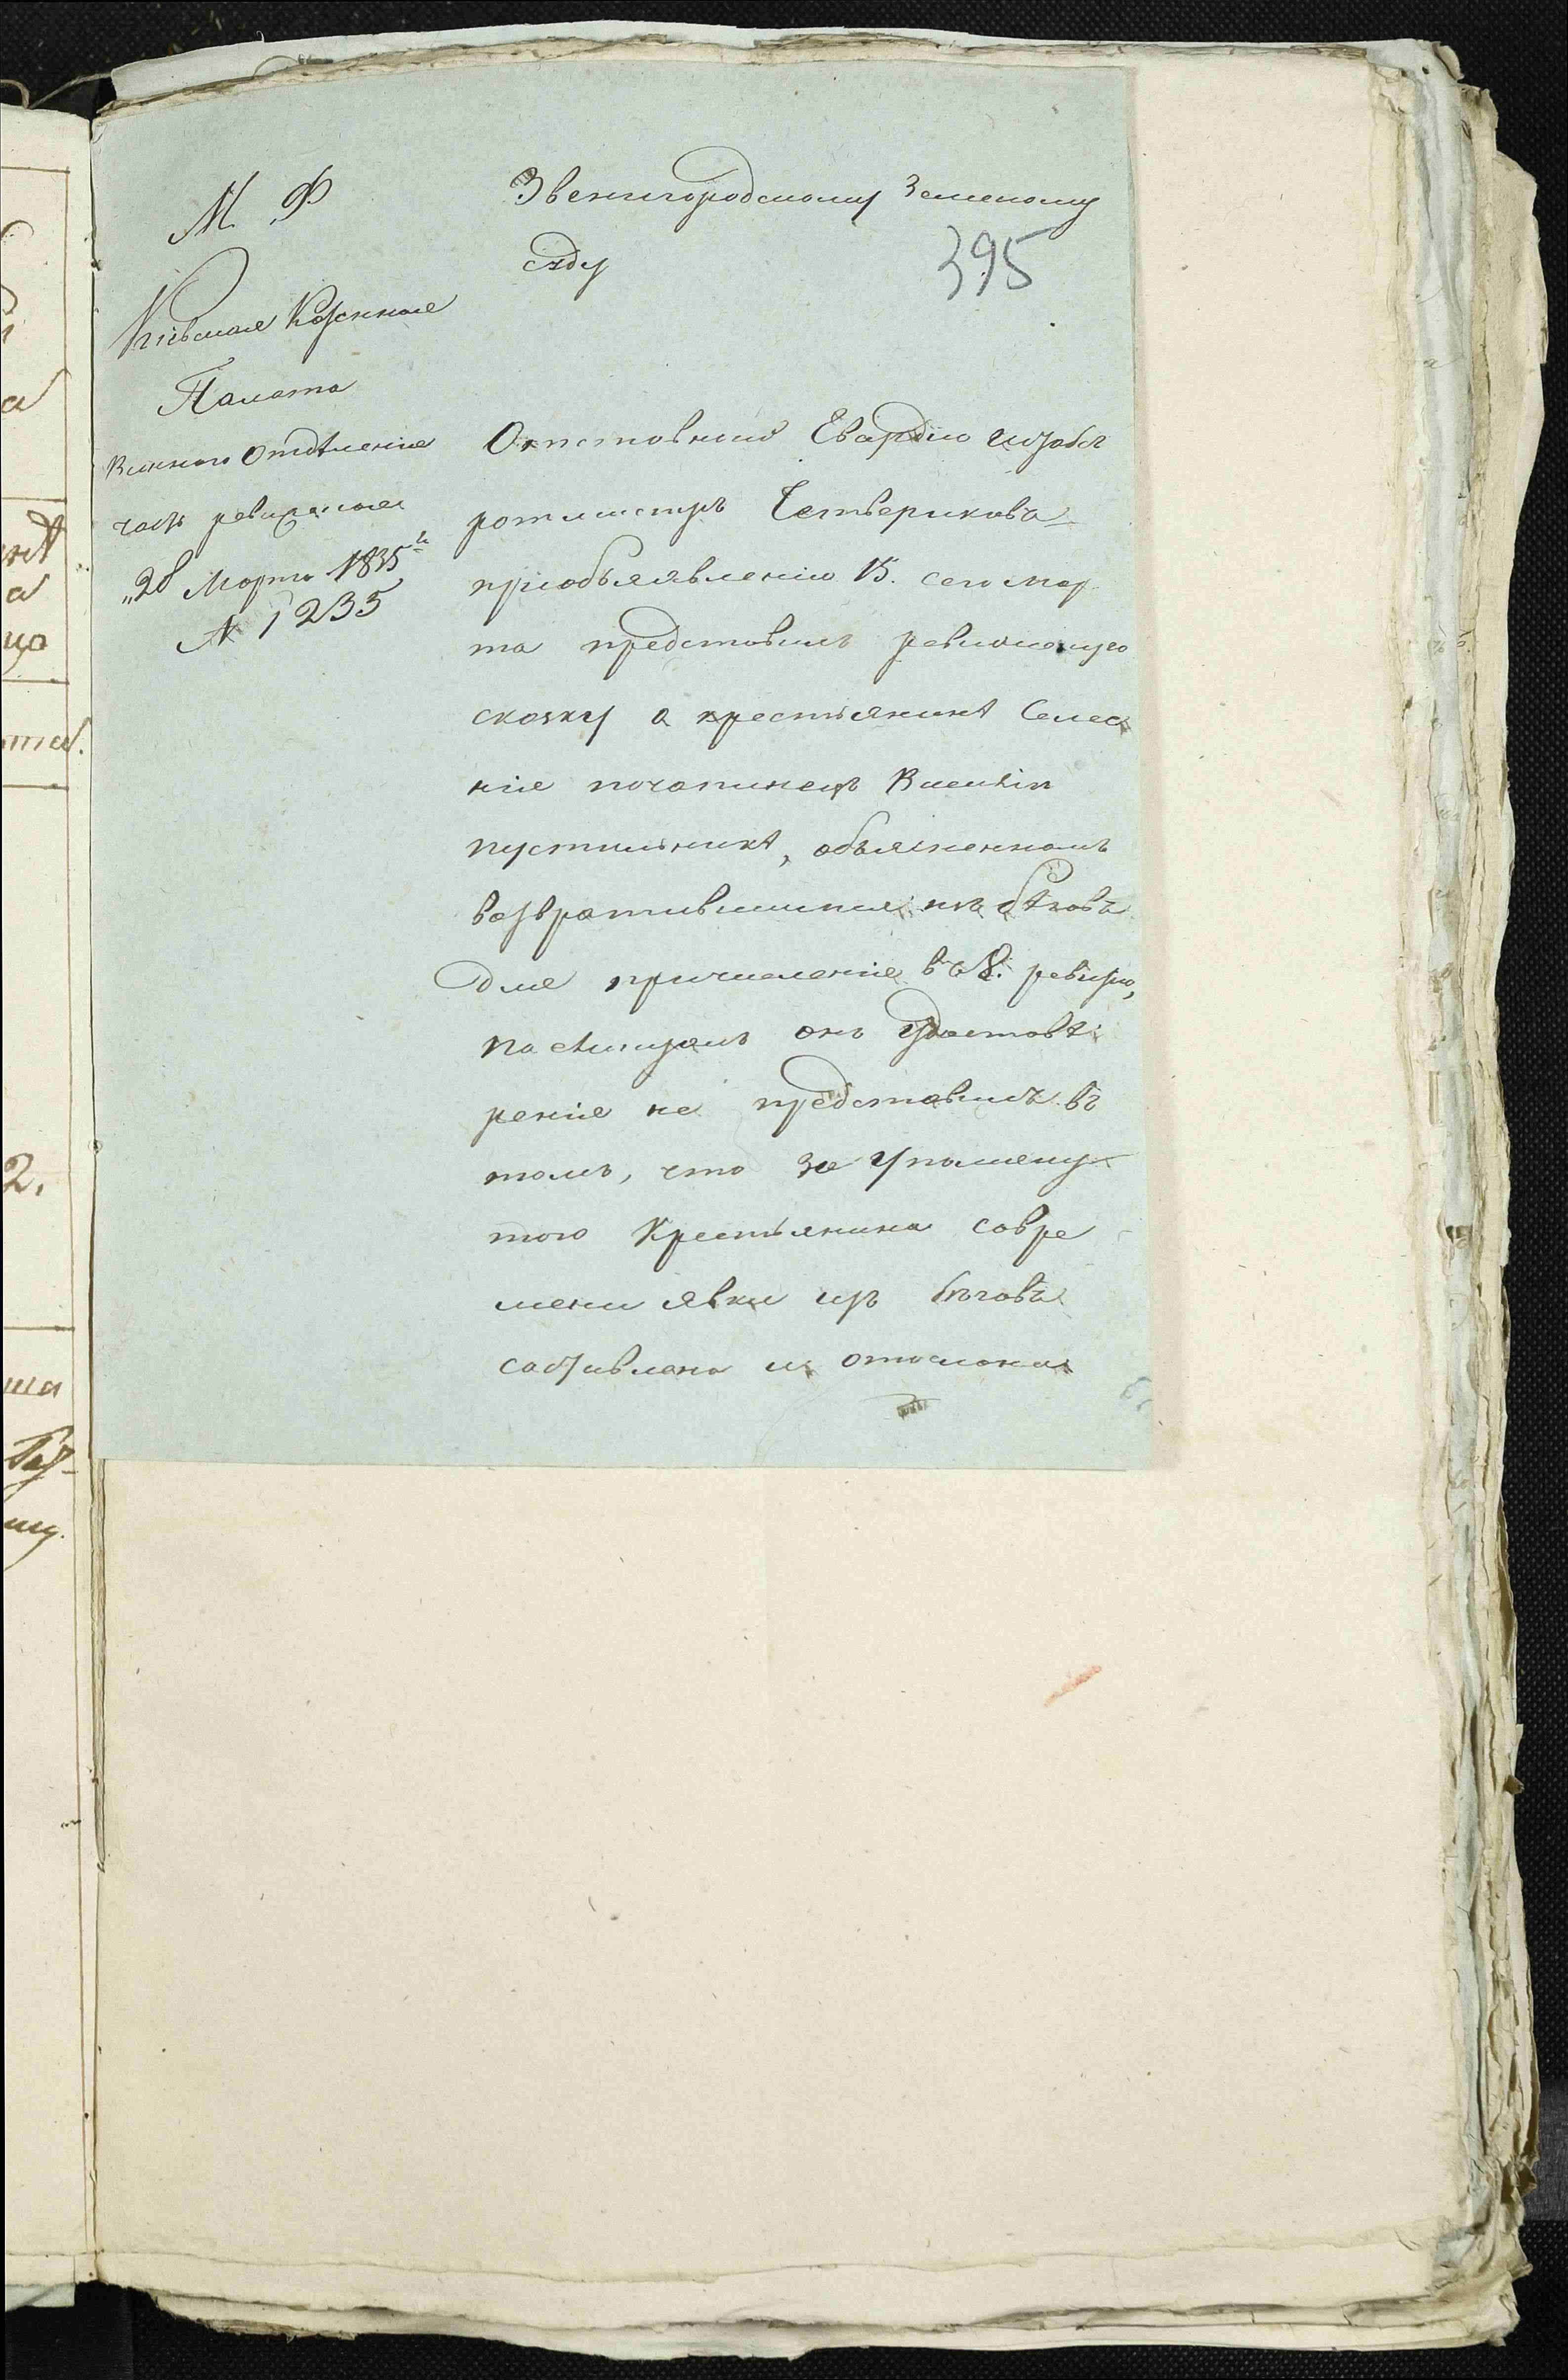 М Ф
Кіевская Казенная
Палата
Виннаго Отдѣленія
часть ревизская
"28 Марта 1835 г.
№ 1235
Звенигородскому Земскому
суду
395
Отставный Гвардіи штабсъ
ротмистръ Четвериковъ
приобъяявленіи 15. сего мар
та представилъ ревизскую
сказку о крестьянинѣ Селе
нія почапинецъ
пустильникѣ, объясненномъ
возвратившимся изъ бѣговъ
для причисленія въ 8. ревизію,
но онъ удостовѣ
ренія не представилъ въ
томъ, что за упомяну
того Крестьянина совре
мени явки изъ бѣговъ
и отослана
2.